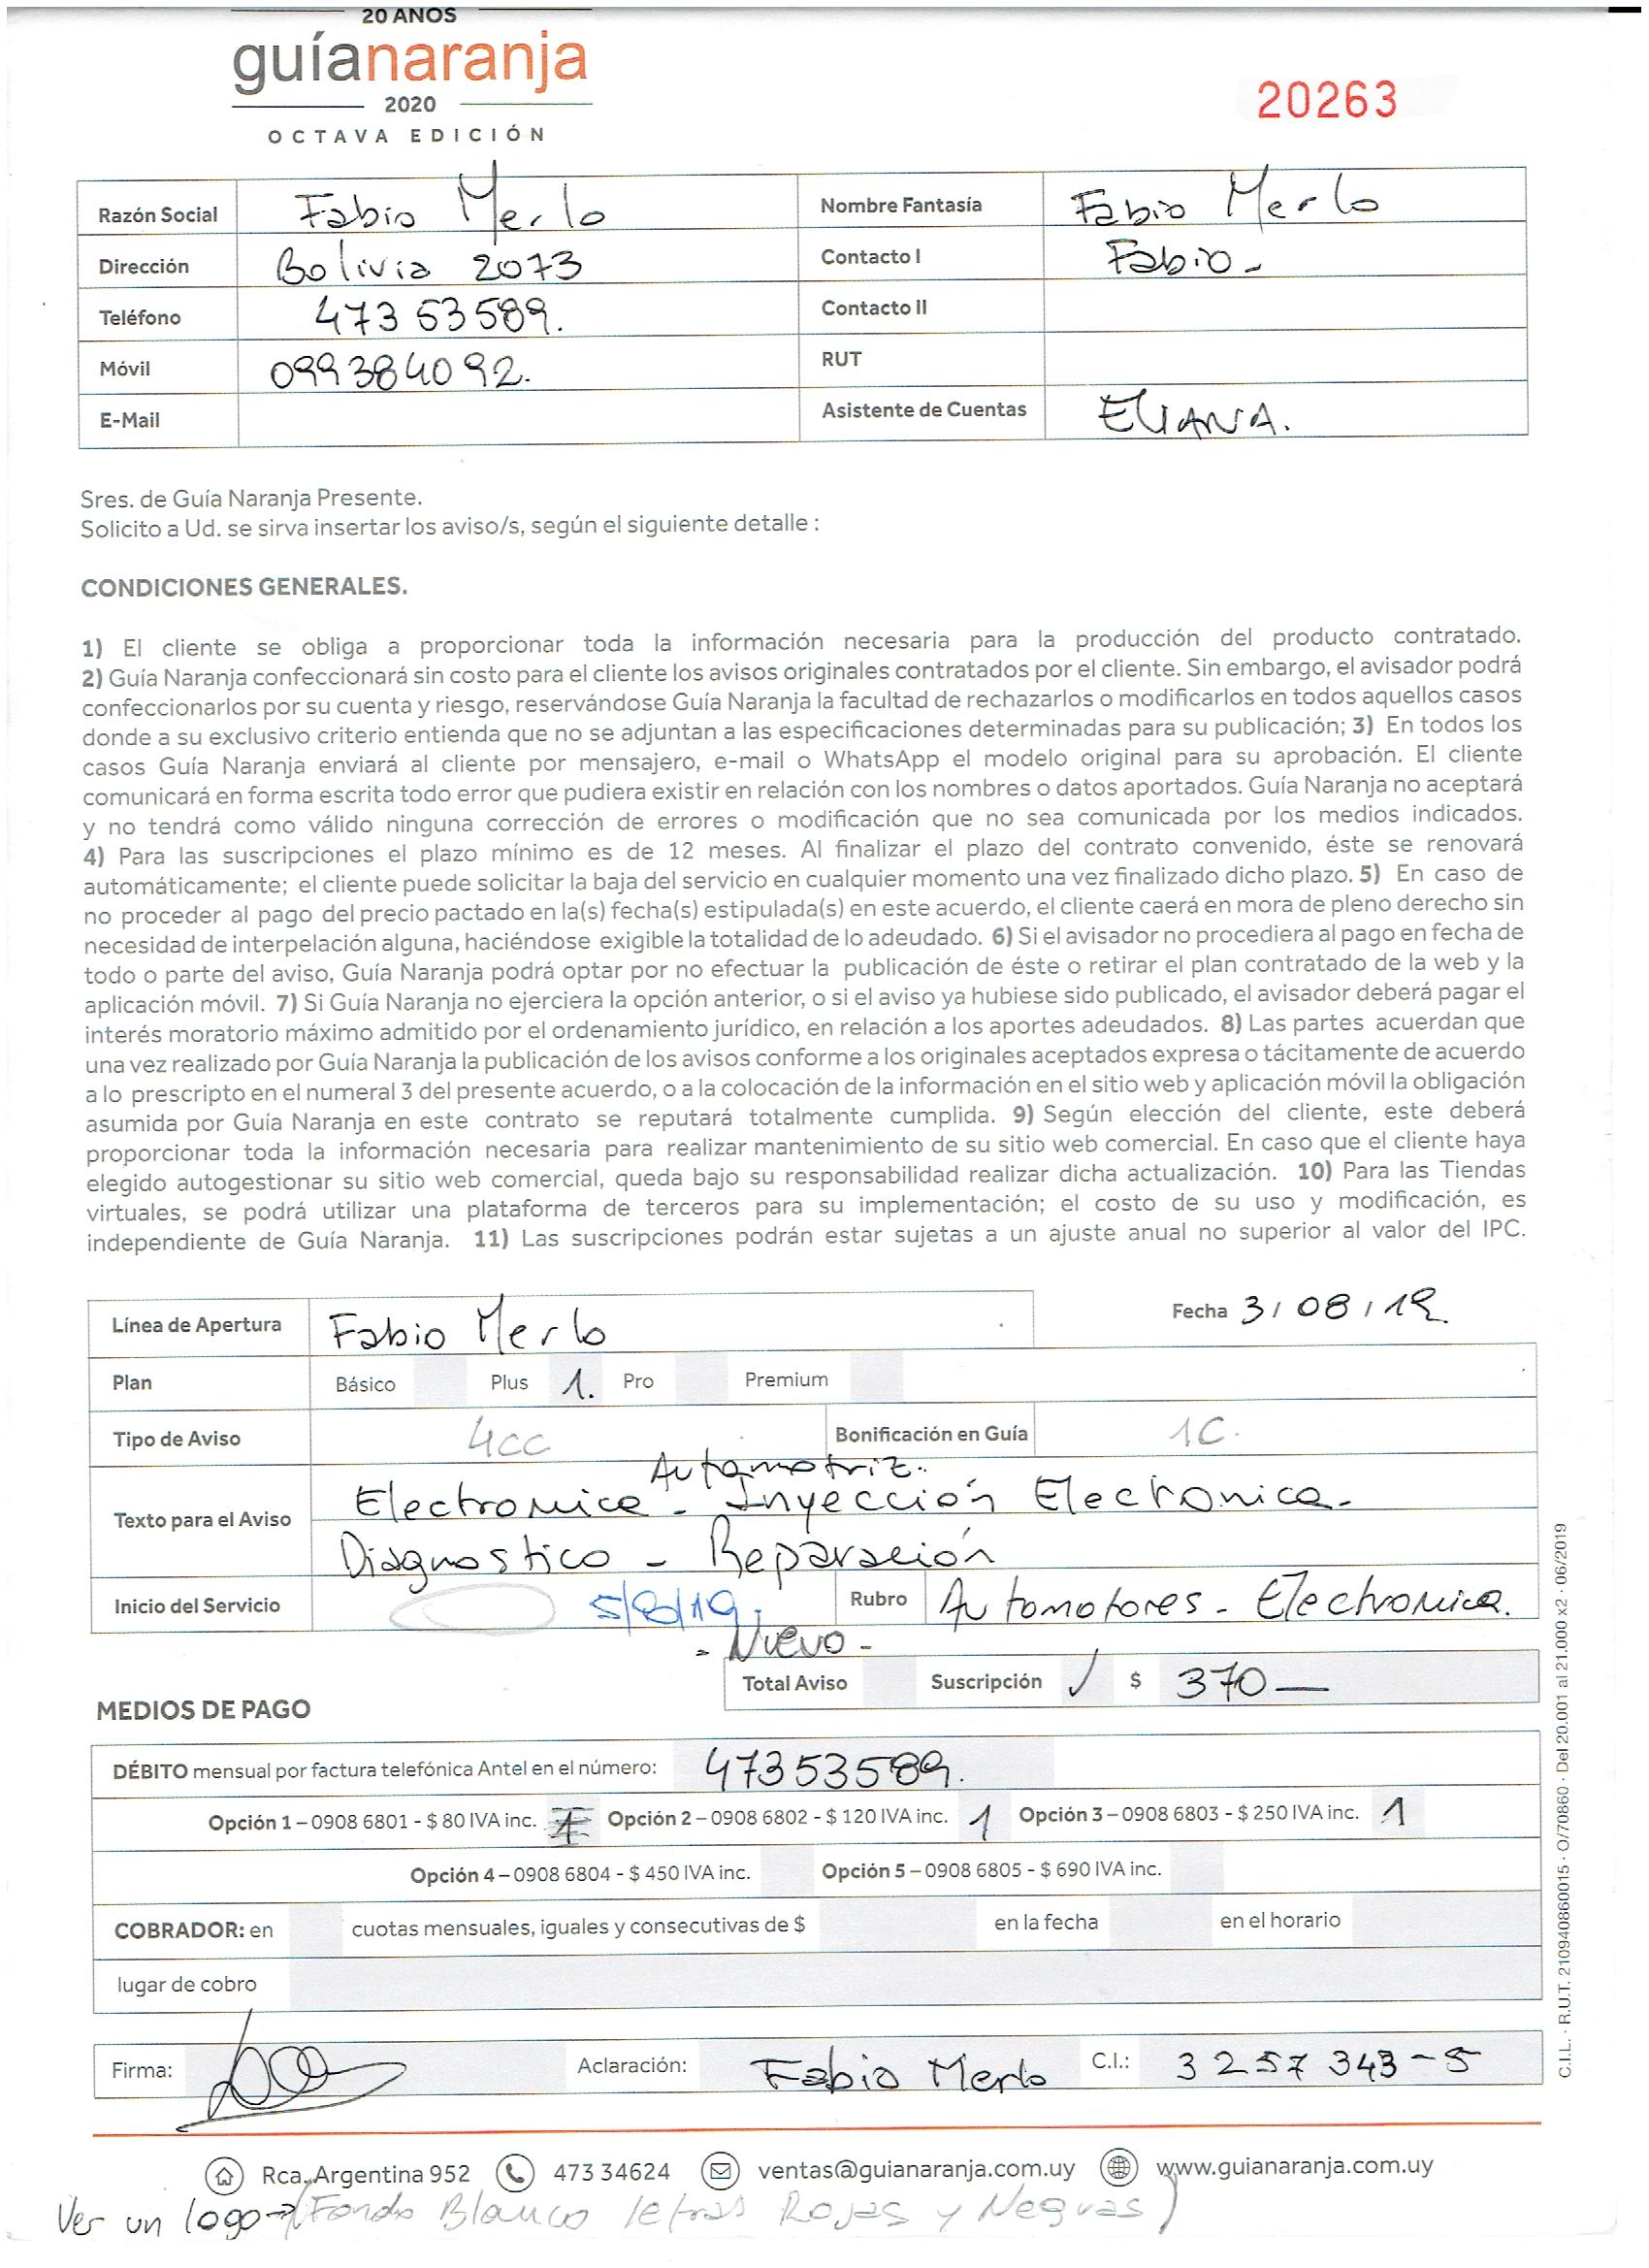 20 AÑOS
guíanaranja
2020
OCTAVA EDICIÓN
20263
Razón Social Fabio Merlo Nombre Fantasía Fabio Merlo
Dirección Bolivia 2073 Contacto I Fabio-
Teléfono 473 53589. Contacto II
Móvil 099384092. RUT
E-Mail Asistente de Cuentas ELIANA.
Sres. de Guía Naranja Presente.
Solicito a Ud. se sirva insertar los aviso/s, según el siguiente detalle :
CONDICIONES GENERALES.
1) El cliente se obliga a proporcionar toda la información necesaria para la producción del producto contratado.
2) Guía Naranja confeccionará sin costo para el cliente los avisos originales contratados por el cliente. Sin embargo, el avisador podrá
confeccionarlos por su cuenta y riesgo, reservándose Guía Naranja la facultad de rechazarlos o modificarlos en todos aquellos casos
donde a su exclusivo criterio entienda que no se adjuntan a las especificaciones determinadas para su publicación; 3) En todos los
casos Guía Naranja enviará al cliente por mensajero, e-mail o WhatsApp el modelo original para su aprobación. El cliente
comunicará en forma escrita todo error que pudiera existir en relación con los nombres o datos aportados. Guía Naranja no aceptará
y no tendrá como válido ninguna corrección de errores o modificación que no sea comunicada por los medios indicados.
4) Para las suscripciones el plazo mínimo es de 12 meses. Al finalizar el plazo del contrato convenido, éste se renovará
automáticamente; el cliente puede solicitar la baja del servicio en cualquier momento una vez finalizado dicho plazo. 5) En caso de
no proceder al pago del precio pactado en la(s) fecha(s) estipulada(s) en este acuerdo, el cliente caerá en mora de pleno derecho sin
necesidad de interpelación alguna, haciéndose exigible la totalidad de lo adeudado. 6) Si el avisador no procediera al pago en fecha de
todo o parte del aviso, Guía Naranja podrá optar por no efectuar la publicación de éste o retirar el plan contratado de la web y la
aplicación móvil. 7) Si Guía Naranja no ejerciera la opción anterior, o si el aviso ya hubiese sido publicado, el avisador deberá pagar el
interés moratorio máximo admitido por el ordenamiento jurídico, en relación a los aportes adeudados. 8) Las partes acuerdan que
una vez realizado por Guía Naranja la publicación de los avisos conforme a los originales aceptados expresa o tácitamente de acuerdo
a lo prescripto en el numeral 3 del presente acuerdo, o a la colocación de la información en el sitio web y aplicación móvil la obligación
asumida por Guía Naranja en este contrato se reputará totalmente cumplida. 9) Según elección del cliente, este deberá
proporcionar toda la información necesaria para realizar mantenimiento de su sitio web comercial. En caso que el cliente haya
elegido autogestionar su sitio web comercial, queda bajo su responsabilidad realizar dicha actualización. 10) Para las Tiendas
virtuales, se podrá utilizar una plataforma de terceros para su implementación; el costo de su uso y modificación, es
independiente de Guía Naranja. 11) Las suscripciones podrán estar sujetas a un ajuste anual no superior al valor del IPC.
Línea de Apertura Fabio Merlo Fecha 3/08/19
Plan Básico Plus 1. Pro Premium
Tipo de Aviso 4cc Bonificación en Guía 1C.
Automotriz.
Texto para el Aviso Electronica - Inyección Electronica-
Diagnostico - Reparación
Inicio del Servicio 5/8/19. Rubro Automotores - Electronica.
- Nuevo -
Total Aviso Suscripción ✓ $ 370—
MEDIOS DE PAGO
DÉBITO mensual por factura telefónica Antel en el número: 47353589.
Opción 1 – 0908 6801 - $ 80 IVA inc. Opción 2 – 0908 6802 - $ 120 IVA inc. 1 Opción 3 – 0908 6803 - $ 250 IVA inc. 1
Opción 4 – 0908 6804 - $ 450 IVA inc. Opción 5 – 0908 6805 - $ 690 IVA inc.
COBRADOR: en cuotas mensuales, iguales y consecutivas de $ en la fecha en el horario
lugar de cobro
Firma: Aclaración: Fabio Merlo C.I.: 3257343-5
Rca. Argentina 952 473 34624 ventas@guianaranja.com.uy www.guianaranja.com.uy
Ver un logo→(Fondo Blanco letras Rojas y Negras)
C.I.L. · R.U.T. 210940860015 · O/70860 · Del 20.001 al 21.000 x2 · 06/2019